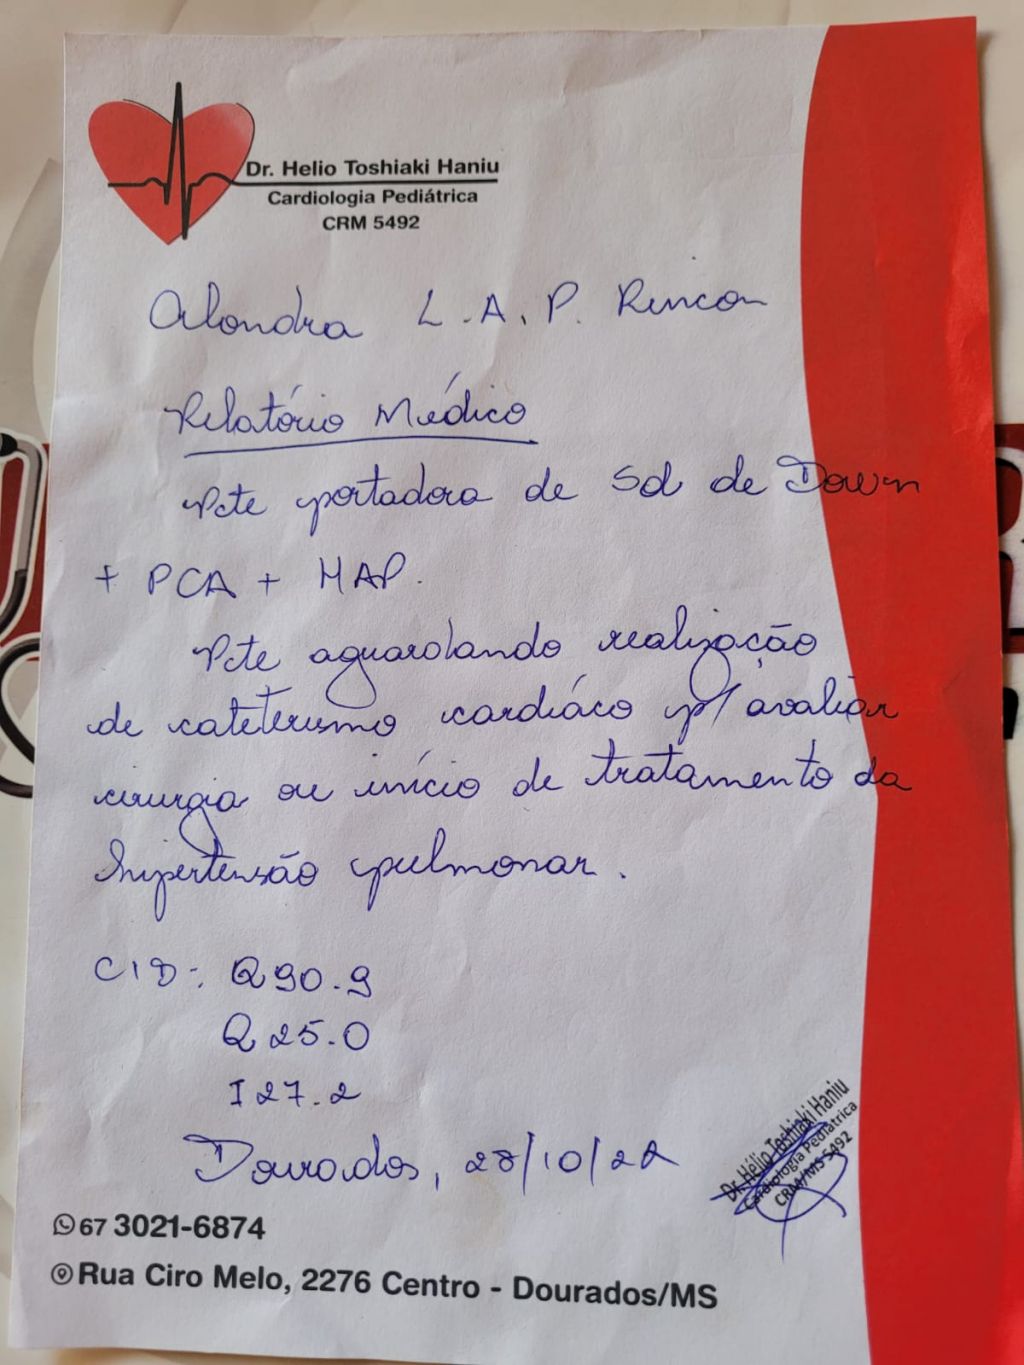 Dr. Helio Toshiaki Haniu
Cardiologia Pediátrica
CRM 5492
Alondra L.A.P. Rincon
Relatório Médico
Pcte portadora de Sd de Down
+ PCA + HAP.
Pcte aguardando realização
de cateterismo cardíaco p/ avaliar
cirurgia ou início de tratamento da
hipertensão pulmonar.
CID: Q90.9
Q25.0
I27.2
Dourados, 28/10/22
Dr. Hélio Toshiaki Haniu
Cardiologia Pediátrica
CRM/MS 5492
67 3021-6874
Rua Ciro Melo, 2276 Centro - Dourados/MS